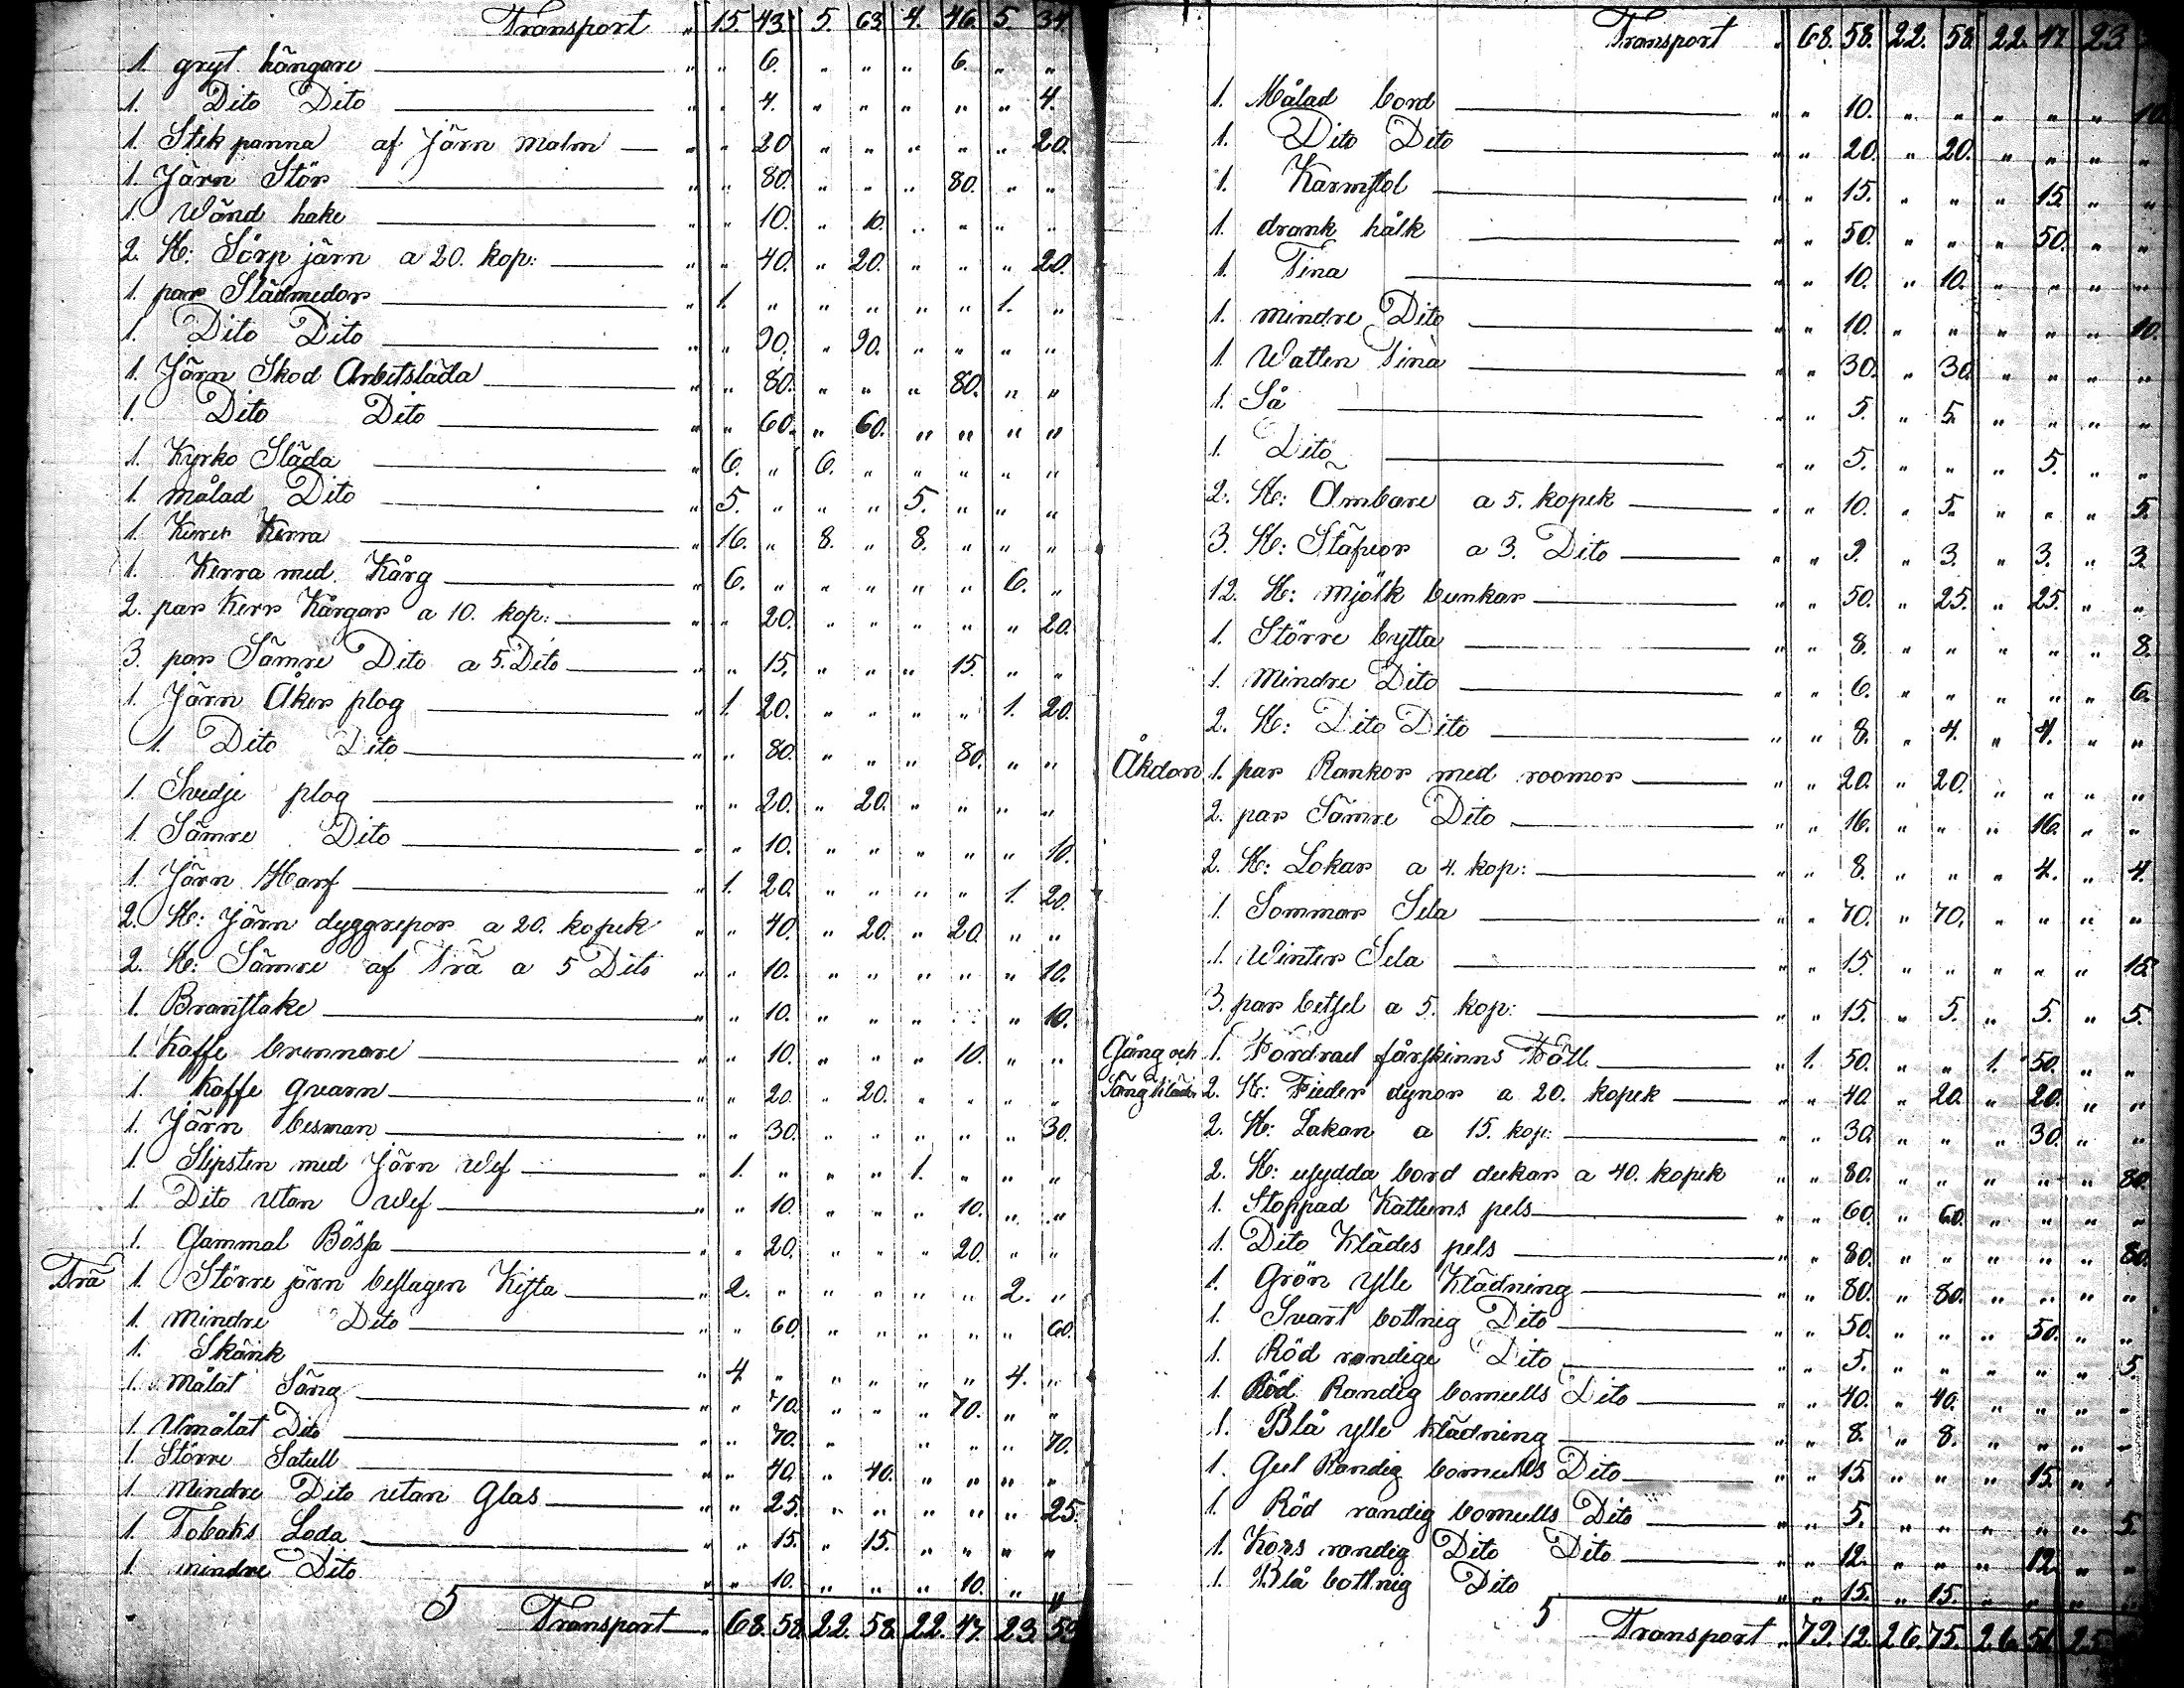 Transport " 15. 43. 5. 63 4. 46. 5. 34.
1. gryt hängare " " 6. " " " 6. " "
1. Dito Dito " " 4. " " " " " 4.
1. Stek panna af Järn malm " " 20 " " " " " 20.
1. Järn Stör " " 80. " " " 80. " "
1. Wänd hake " " 10. " 10. " " " "
2. St: Sörp järn a 20. kop: " " 40. " 20. " " " 20.
1. par Slädmedor " 1. " " " " " 1. "
1. Dito Dito " " 90. " 90. " " " "
1. Järn Skod Arbetsläda " " 80. " " " 80. " "
1. Dito Dito " " 60. " 60. " " " "
1. Kyrko Släda " 6. " 6. " " " " "
1. målad Dito " 5. " " " 5. " " "
1. Kerra " 16. " 8. " 8. " " "
1. Kerra med Kårg " 6. " " " " " 6. "
2. par Kerr Kårgar a 10. kop: " " 20. " " " " " 20.
3. par Sämre Dito a 5. Dito " " 15. " " " 15. " "
1. Järn Åker plog " 1. 20. " " " " 1. 20.
1. Dito Dito " " 80. " " " 80. " "
1. Svedje plog " " 20. " 20. " " " "
1 Sämre Dito " " 10. " " " " " 10.
1. Järn Harf " 1. 20. " " " " 1. 20.
2. St: Järn dyggrepor a 20. kopek " " 40. " 20. " 20. " "
2. St: Sämre af Trä a 5 Dito " " 10. " " " " " 10.
1. Branstake " " 10. " " " " " 10.
1. Kaffe brennare " " 10. " " " 10. " "
1. Kaffe qvarn " " 20. " 20. " " " "
1. Järn besman " " 30. " " " " " 30.
1. Slipsten med Järn Wef " 1. " " " 1. " " "
1. Dito utan Wef " " 10. " " " 10. " "
1. Gammal Bössa " " 20. " " " 20. " "
Trä 1. Större järn beslagen Kista " 2. " " " " " 2. "
1. Mindre Dito " " 60. " " " " " 60.
1. Skänk " 4 " " " " " 4. "
1. målat Säng " " 70. " " " 70. " "
1. Umålat Dito " " 70. " " " " " 70.
1. Större Satull " " 40. " 40. " " " "
1. Mindre Dito utan Glas " " 25. " " " " " 25.
1. Tobaks Loda " " 15. " 15. " " " "
1. mindre Dito " " 10. " " " 10. " "
5 Transport " 68. 58. 22. 58. 22. 47. 23. 53
Transport " 68. 58. 22. 58. 22. 47. 23.
1. Målad bord " " 10. " " " " " 10.
1. Dito Dito " " 20. " 20. " " " "
1. Karmstol " " 15. " " " 15. " "
1. drank hålk " " 50. " " " 50. " "
1. Tina " " 10. " 10. " " " "
1. mindre Dito " " 10. " " " " " 10.
1. Watten Tina " " 30. " 30. " " " "
1. Så " " 5. " 5. " " " "
1. Dito " " 5. " " " 5. " "
2. St: Ämbare a 5. kopek " " 10. " 5. " " " 5.
3. St: Stäfvor a 3. Dito " " 9. " 3. " 3. " 3.
12. St: Mjölk bunkar " " 50. " 25. " 25. " "
1. Större bytta " " 8. " " " " " 8.
1. Mindre Dito " " 6. " " " " " 6.
2. St: Dito Dito " " 8. " 4. " 4. " "
Åkdon 1. par Rankor med roomor " " 20. " 20. " " " "
2. par Sämre Dito " " 16. " " " 16. " "
2. St: Lokar a 4. kop: " " 8. " " " 4. " 4.
1. Sommar Sela " " 70. " 70. " " " "
1. Winter Sela " " 15. " " " " " 15.
3. par betsel a 5. kop: " " 15. " 5. " 5. " 5.
Gång och 1. Fordrad fårskinns Fäll " 1. 50. " " 1. 50. " "
Säng Kläder 2. St: Fieder dynor a 20. kopek " " 40. " 20. " 20. " "
2. St: Lakan a 15. kop: " " 30. " " " 30. " "
2. St: usydda bord dukar a 40. kopek " " 80. " " " " " 80.
1. Stoppad Kattuns pels " " 60. " 60. " " " "
1. Dito Klädes pels " " 80. " " " " " 80.
1. Grön ylle Klädning " " 80. " 80. " " " "
1. Svart bottnig Dito " " 50. " " " 50. " "
1. Röd randige Dito " " 5. " " " " " 5.
1. Röd Randig bomulls Dito " " 40. " 40. " " " "
1. Blå ylle klädning " " 8. " 8. " " " "
1. Gul Randig bomulls Dito " " 15. " " " 15. " "
1. Röd randig bomulls Dito " " 5. " " " " " 5.
1. Kors randig Dito Dito " " 12. " " " 12. " "
1. Blå bottnig Dito " " 15. " 15. " " " "
5 Transport " 79. 12. 26. 75. 26. 51. 25.